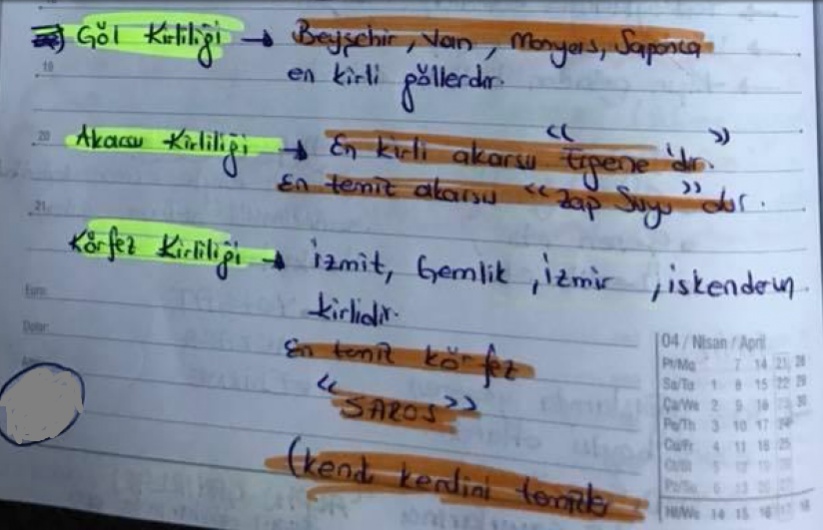 Göl Kirliliği → Beyşehir, Van, Monyers, Saponca
en kirli göllerdır.
19
20
Akarsu Kirliliği → En kirli akarsu "Ergene"dir.
En temiz akarsu "Zap Suyu"dur.
21
Körfez Kirliliği → İzmit, Gemlik, İzmir, İskenderun
kirlidir.
Euro:
Dolar:
En temiz körfez
"SAROS"
(kendi kendini temizle
04 / Nisan / April
Pt/Mo 7 14 21 28
Sa/Tu 1 8 15 22 29
Ça/We 2 9 16 23 30
Pe/Th 3 10 17 24
Cu/Fr 4 11 18 25
Pz/Su 6 13 20 27
Hf/We 14 15 16 17 18